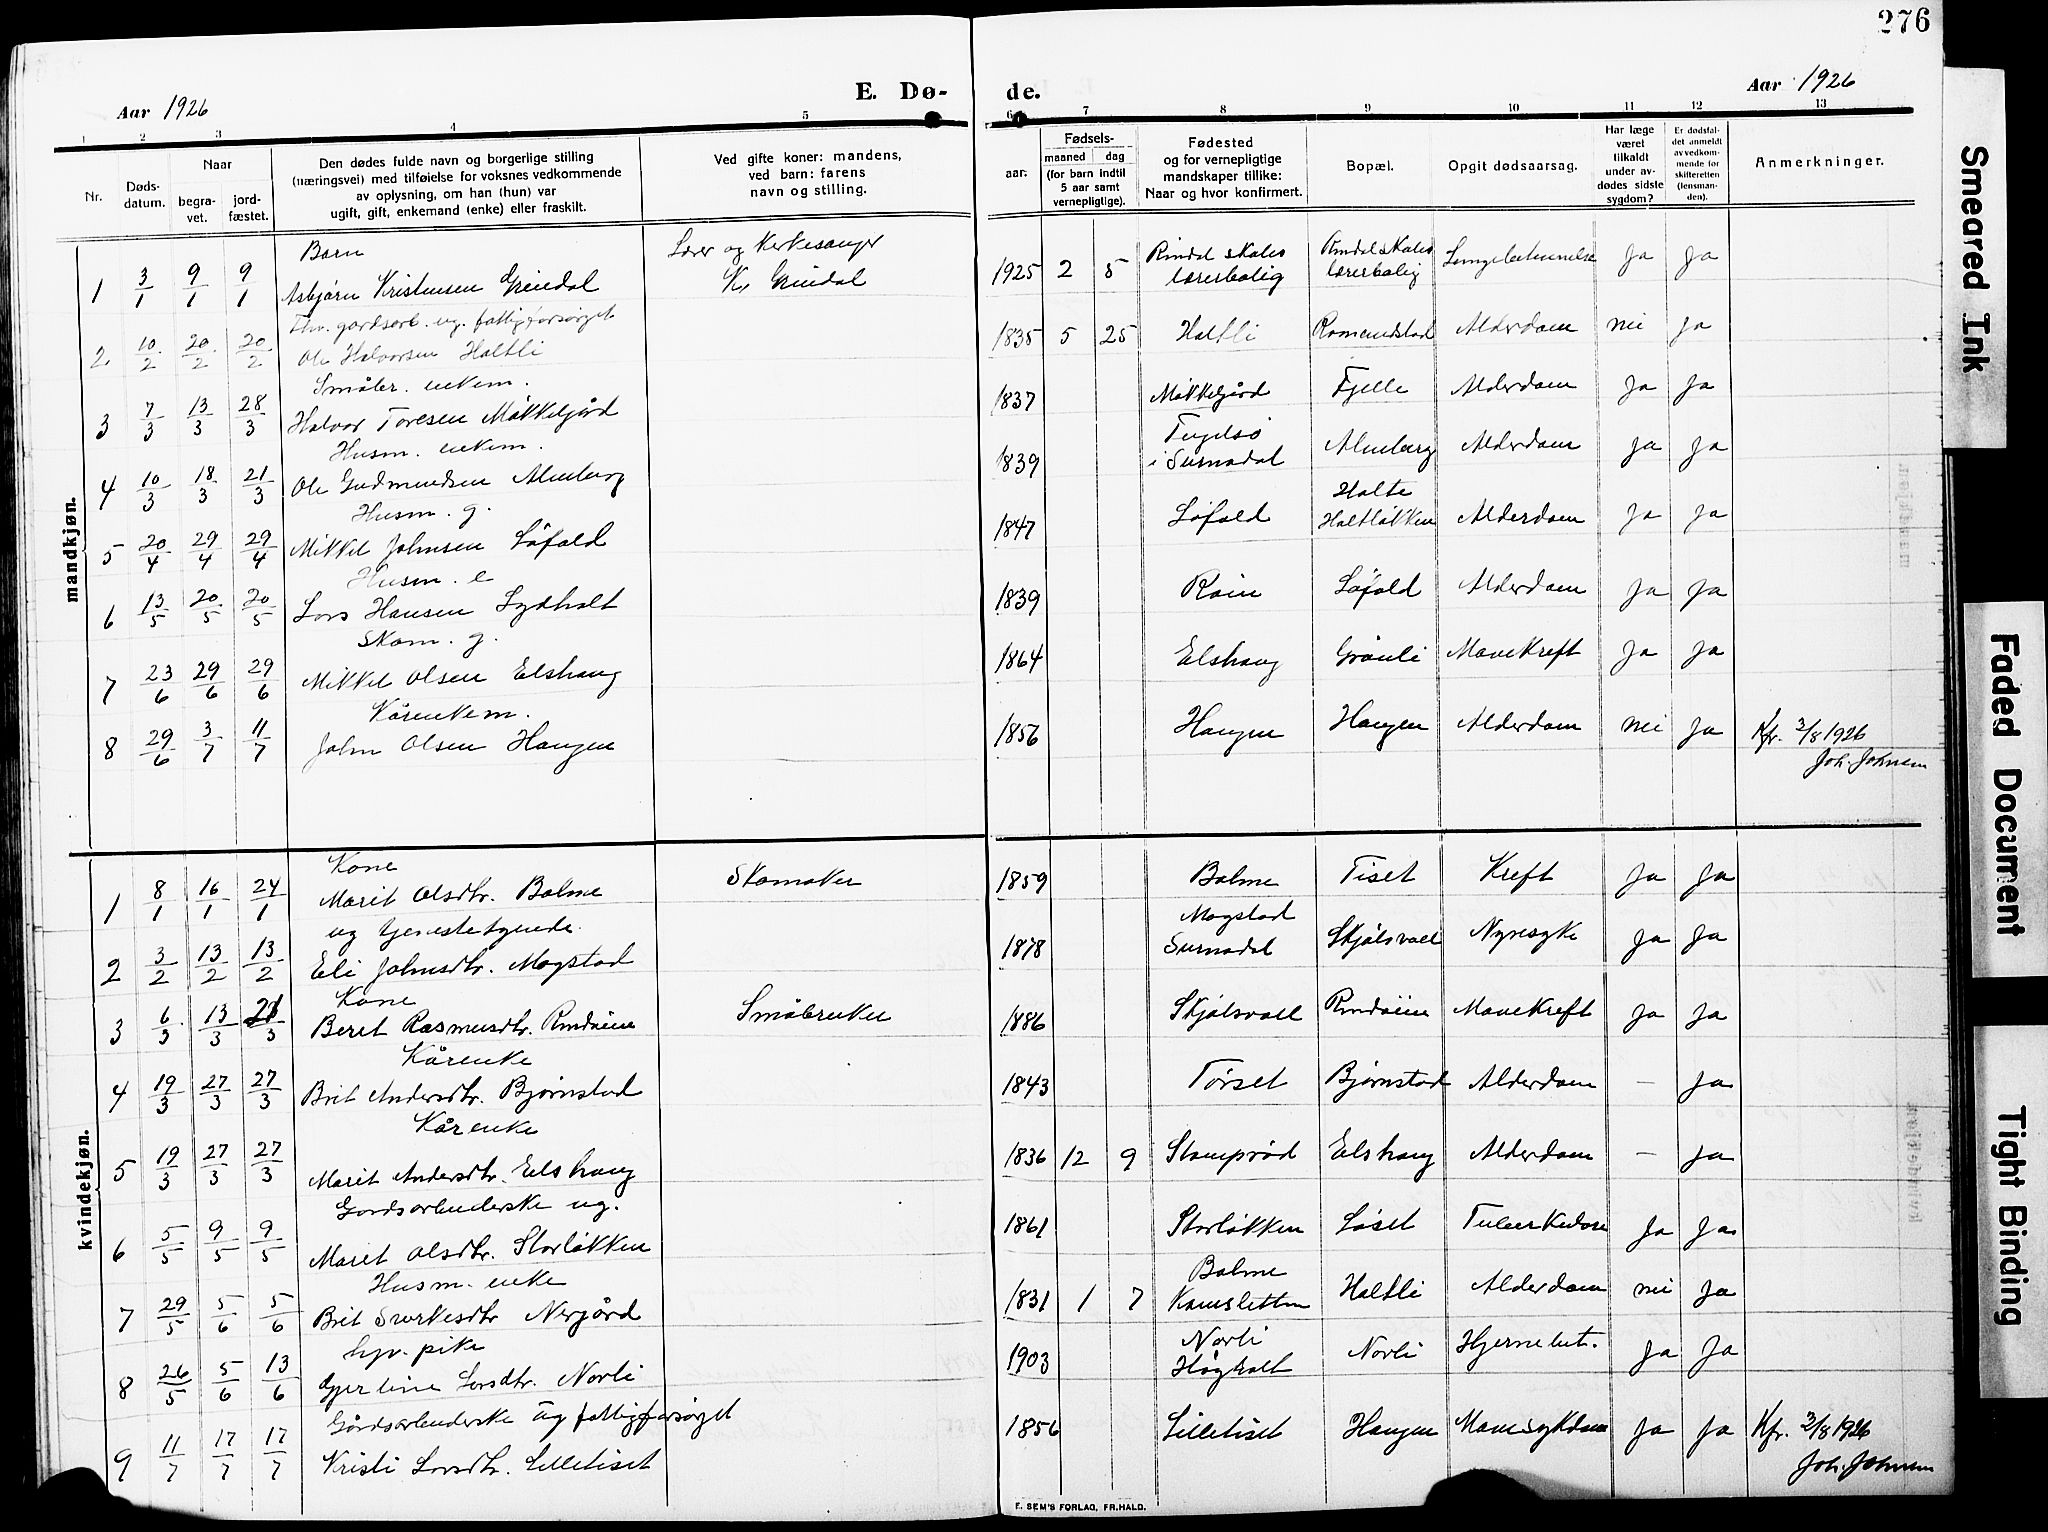 276
Aar 1926
E. Dø-
de.
Aar 1926
1 2 3 4 5 6 7 8 9 10 11 12 13
Nr.
Døds-
datum.
Naar
begra-
vet.
jord-
fæstet.
Den dødes fulde navn og borgerlige stilling
(næringsvei) med tilføielse for voksnes vedkommende
av oplysning, om han (hun) var
ugift, gift, enkemand (enke) eller fraskilt.
Ved gifte koner: mandens,
ved barn: farens
navn og stilling.
aar.
Fødsels-
maaned dag
(for barn indtil
5 aar samt
vernepligtige).
Fødested
og for vernepligtige
mandskaper tillike:
Naar og hvor konfirmert.
Bopæl.
Opgit dødsaarsag.
Har læge
været
tilkaldt
under av-
dødes sidste
sygdom?
Er dødsfal-
det anmeldt
av vedkom-
mende for
skifteretten
(lensman-
den).
Anmerkninger.
mandkjøn.
Barn Lærer og Kirkesanger Rindal skoles Rindal skoles
1 3/1 9/1 9/1 Asbjørn Kristensen Grindal K. Grindal 1925 2 5 lærerbolig lærerbolig Lungebetennelse Ja Ja
gårdsarb. ug. fattigforsørget
2 10/2 20/2 20/2 Ole Halvorsen Haltli 1835 5 25 Haltli Romundstad Alderdom nei Ja
Småbr. enkem.
3 7/3 13/3 28/3 Halvor Toresen Mikkelgård 1837 Mikkelgård Fjelle Alderdom Ja Ja
Husm. enkem.
4 10/3 18/3 21/3 Ole Gudmundsen Almberg 1839 i Surnadal Almberg Alderdom Ja Ja
Husm. g. Halte
5 20/4 29/4 29/4 Mikkel Johnsen Løfald 1847 Løfald Haltløkken Alderdom Ja Ja
Husm. e
6 13/5 20/5 20/5 Lars Hansen Sydhalt 1839 Røin Løfald Alderdom Ja Ja
Skom. g.
7 23/6 29/6 29/6 Mikkel Olsen Elshaug 1864 Elshaug Grønli Mavekreft Ja Ja
Kårenkem.
8 29/6 3/7 11/7 John Olsen Haugen 1856 Haugen Haugen Alderdom nei Ja Kfr. 3/8 1926
Joh. Johnsen
kvindekjøn.
Kone
1 8/1 16/1 24/1 Marit Olsdtr. Bolme Skomaker 1859 Bolme Tiset Kreft Ja Ja
ug tjenestetyende. Mogstad
2 3/2 13/2 13/2 Eli Johnsdtr. Mogstad 1878 Surnadal Skjølsvoll Nyresyke Ja Ja
Kone
3 6/3 13/3 21/3 Beret Rasmusdtr. Rindøien Småbruker 1886 Skjølsvoll Rindøien Mavekreft Ja Ja
Kårenke
4 19/3 27/3 27/3 Brit Andersdtr. Bjørnstad 1843 Tørset Bjørnstad Alderdom – Ja
Kårenke
5 19/3 27/3 27/3 Marit Andersdtr. Elshaug 1836 12 9 Stomprød Elshaug Alderdom – Ja
Gårdsarbeiderske ug.
6 5/5 9/5 9/5 Marit Olsdtr. Storløkken 1861 Storløkken Løset Tuberkulose Ja Ja
Husm. enke Bolme
7 29/5 5/6 5/6 Brit Sivertsdtr Nergård 1831 1 7 Haltli Alderdom nei Ja
pike Norli
8 26/5 5/6 13/6 Gjertine Larsdtr. Norli 1903 Høgholt Norli Hjernebet. Ja Ja
Gårdsarbeiderske ug fattigforsørget
9 11/7 17/7 17/7 Kristi Larsdtr. Lilletiset 1856 Lilletiset Haugen Mavesykdom Ja Ja Kfr. 3/8 1926
Joh. Johnsen
E. SEM'S FORLAG, FR.HALD.
Smeared Ink
Faded Document
Tight Binding